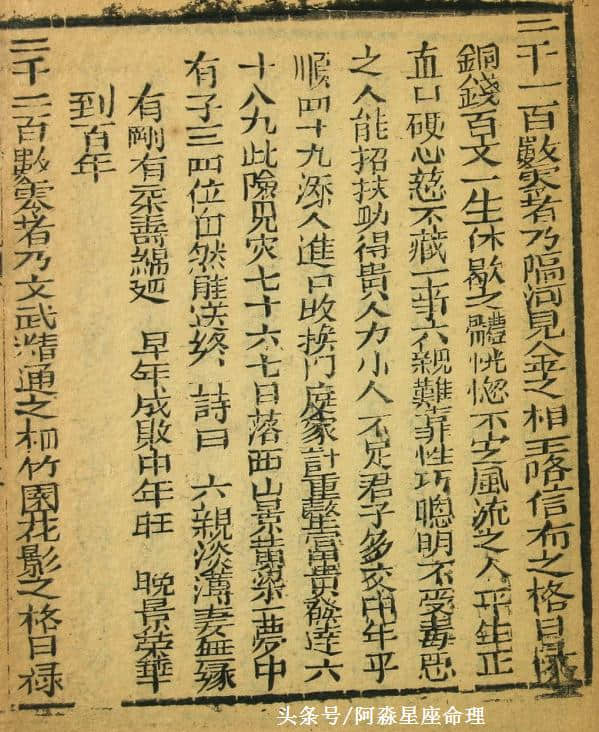 二千一百數零者乃隔河見金之相王路信布之格日祿
銅錢百文一生休歇之體恍惚不定風流之人平生正
直口硬心慈不藏一事六親難靠性巧聰明不受毒惡
之人能招扶助得貴人力小人不足君子多交中年平
順四十九添人進口改換門庭家計重整富貴發達六
十八九此險見災七十六七日落西山景黃粱一夢中
有子三四位自然能送終 詩曰 六親淡薄妻無緣
有剛有柔壽綿延 早年成敗中年旺 晚景榮華
到百年
二千二百數零者乃文武精通之相竹園花影之格日祿
头条号/阿淼星座命理